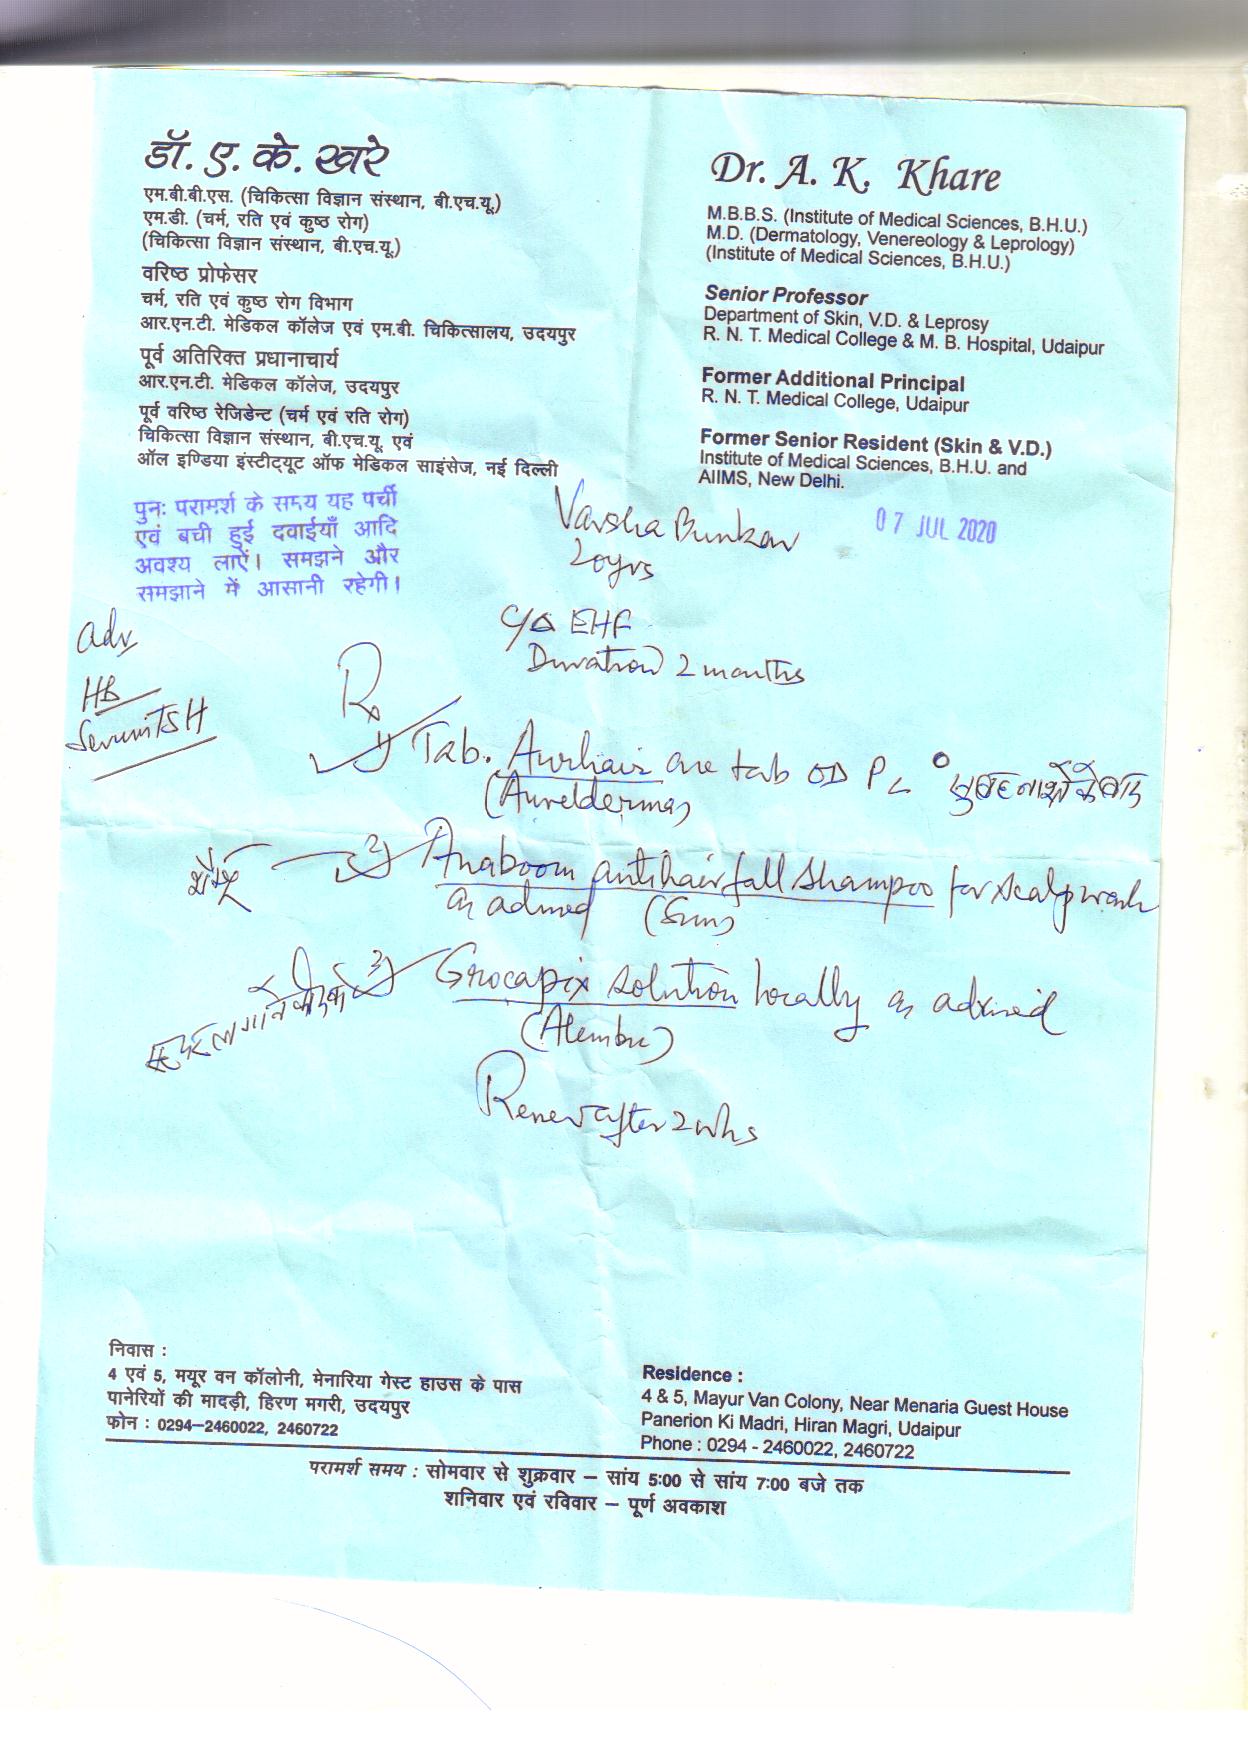 डॉ. ए. के. खरे
एम.बी.बी.एस. (चिकित्सा विज्ञान संस्थान, बी.एच.यू.)
एम.डी. (चर्म, रति एवं कुष्ठ रोग)
(चिकित्सा विज्ञान संस्थान, बी.एच.यू.)
वरिष्ठ प्रोफेसर
चर्म, रति एवं कुष्ठ रोग विभाग
आर.एन.टी. मेडिकल कॉलेज एवं एम.बी. चिकित्सालय, उदयपुर
पूर्व अतिरिक्त प्रधानाचार्य
आर.एन.टी. मेडिकल कॉलेज, उदयपुर
पूर्व वरिष्ठ रेजिडेन्ट (चर्म एवं रति रोग)
चिकित्सा विज्ञान संस्थान, बी.एच.यू. एवं
ऑल इण्डिया इंस्टीट्यूट ऑफ मेडिकल साइंसेज, नई दिल्ली
Dr. A. K. Khare
M.B.B.S. (Institute of Medical Sciences, B.H.U.)
M.D. (Dermatology, Venereology & Leprology)
(Institute of Medical Sciences, B.H.U.)
Senior Professor
Department of Skin, V.D. & Leprosy
R. N. T. Medical College & M. B. Hospital, Udaipur
Former Additional Principal
R. N. T. Medical College, Udaipur
Former Senior Resident (Skin & V.D.)
Institute of Medical Sciences, B.H.U. and
AIIMS, New Delhi.
पुनः परामर्श के समय यह पर्ची
एवं बची हुई दवाईयाँ आदि
अवश्य लाऐं। समझने और
समझाने में आसानी रहेगी।
Varsha Bunkar
20yrs
07 JUL 2020
C/o EHF
Duration 2 months
Adv
HB
Serum TSH
Rx
1) Tab. Aurhair one tab OD PC सुबह नाश्ते के बाद
(Aurelderma)
शैम्पू 2) Anaboom antihairfall Shampoo for scalp wash
as advised (Sun)
3) Grocapix solution locally as advised
(Alembic)
Renew after 2 wks
निवास :
4 एवं 5, मयूर वन कॉलोनी, मेनारिया गेस्ट हाउस के पास
पानेरियों की मादड़ी, हिरण मगरी, उदयपुर
फोन : 0294–2460022, 2460722
Residence :
4 & 5, Mayur Van Colony, Near Menaria Guest House
Panerion Ki Madri, Hiran Magri, Udaipur
Phone : 0294 - 2460022, 2460722
परामर्श समय : सोमवार से शुक्रवार – सांय 5:00 से सांय 7:00 बजे तक
शनिवार एवं रविवार – पूर्ण अवकाश